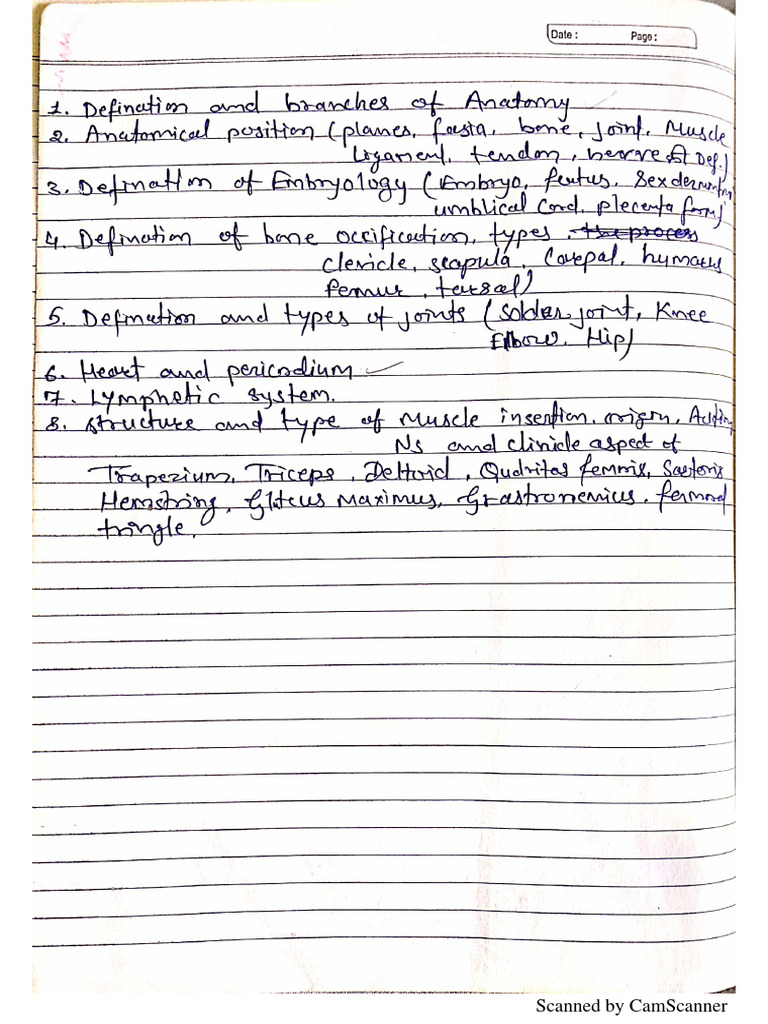 Date : Page :
1. Defination and branches of Anatomy
2. Anatomical position (planes, fasia, bone, Joint, Muscle
Ligament, tendon, nerve की Def.)
3. Defination of Embryology (Embryo, feutus, Sex
umblical Cord, plecenta form)
4. Defination of bone occification, types, the process
clevicle, scapula, Corepal, humatus
femur, tarsal)
5. Defination and types of joints (Solder joint, Knee
Elbow, Hip)
6. Heart and pericrodium
7. Lymphetic system.
8. structure and type of Muscle insention, origin, Action,
Ns and clinicle aspect of
Trapezium, Triceps, Deltoid, Qudritas femmis, Sartoris
Hemstring, Gluteus Maximus, Grastronemicus, femoral
tringle.
Scanned by CamScanner